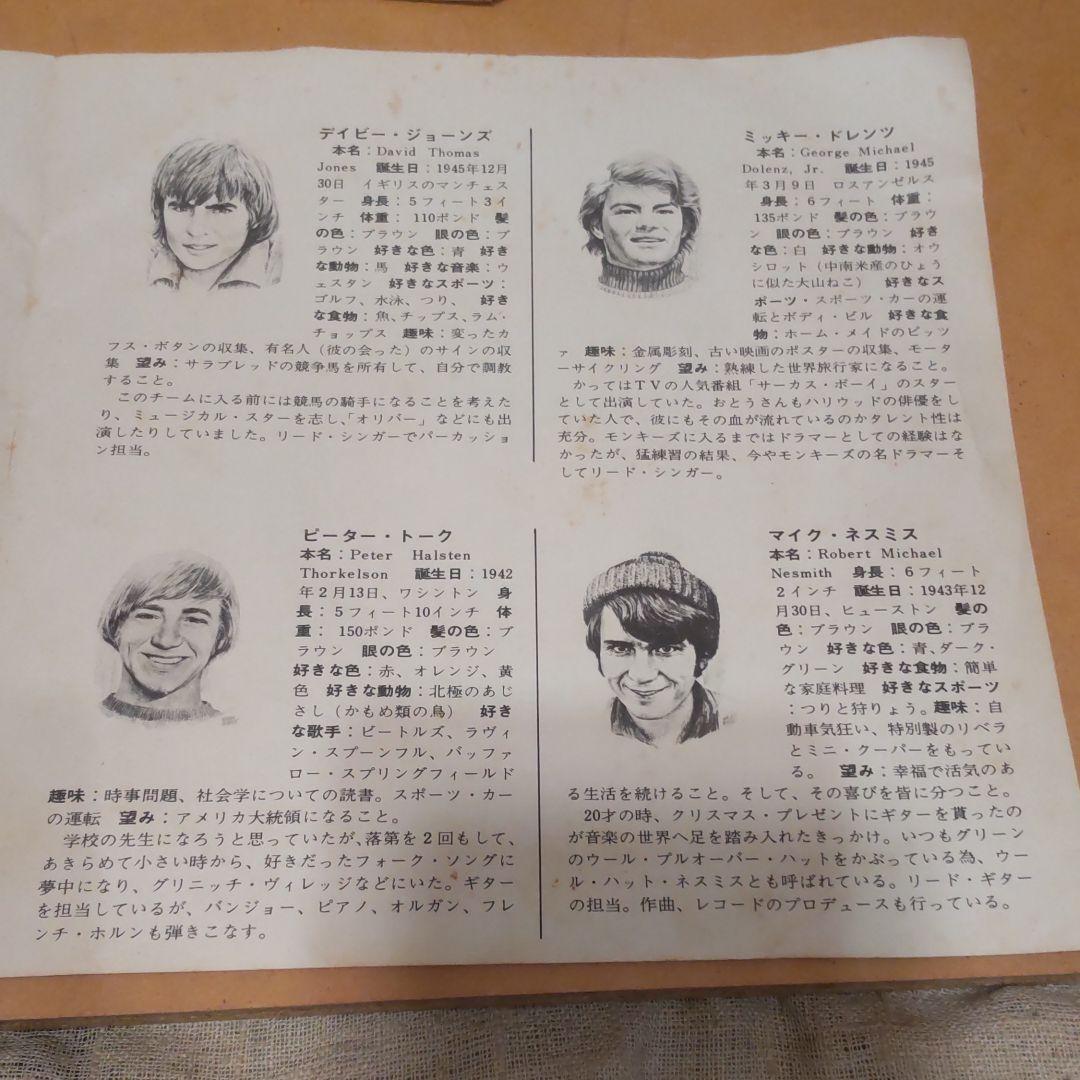 デイビー・ジョーンズ
本名：David Thomas
Jones 誕生日：1945年12月
30日 イギリスのマンチェス
ター 身長：5フィート3イ
ンチ 体重： 110ポンド 髪
の色：ブラウン 眼の色：ブ
ラウン 好きな色：青 好き
な動物：馬 好きな音楽：ウ
ェスタン 好きなスポーツ：
ゴルフ、水泳、つり、 好き
な食物：魚、チップス、ラム・
チョップス 趣味：変ったカ
フス・ボタンの収集、有名人（彼の会った）のサインの収
集 望み：サラブレッドの競争馬を所有して、自分で調教
すること。
このチームに入る前には競馬の騎手になることを考えた
り、ミュージカル・スターを志し、「オリバー」などにも出
演したりしていました。リード・シンガーでパーカッショ
ン担当。
ミッキー・ドレンツ
本名：George Michael
Dolenz, Jr. 誕生日：1945
年3月9日 ロスアンゼルス
身長：6フィート 体重：
135ポンド 髪の色：ブラウ
ン 眼の色：ブラウン 好き
な色：白 好きな動物：オウ
シロット（中南米産のひょう
に似た大山ねこ） 好きなス
ポーツ・スポーツ・カーの運
転とボディ・ビル 好きな食
物：ホーム・メイドのピッツ
ァ 趣味：金属彫刻、古い映画のポスターの収集、モータ
ーサイクリング 望み：熟練した世界旅行家になること。
かってはTVの人気番組「サーカス・ボーイ」のスター
として出演していた。おとうさんもハリウッドの俳優をし
ていた人で、彼にもその血が流れているのかタレント性は
充分。モンキーズに入るまではドラマーとしての経験はな
かったが、猛練習の結果、今やモンキーズの名ドラマーそ
してリード・シンガー。
ピーター・トーク
本名：Peter Halsten
Thorkelson 誕生日：1942
年2月13日、ワシントン 身
長：5フィート10インチ 体
重： 150ポンド 髪の色：ブ
ラウン 眼の色：ブラウン
好きな色：赤、オレンジ、黄
色 好きな動物：北極のあじ
さし（かもめ類の鳥） 好き
な歌手：ビートルズ、ラヴィ
ン・スプーンフル、バッファ
ロー・スプリングフィールド
趣味：時事問題、社会学についての読書。スポーツ・カー
の運転 望み：アメリカ大統領になること。
学校の先生になろうと思っていたが、落第を2回もして、
あきらめて小さい時から、好きだったフォーク・ソングに
夢中になり、グリニッチ・ヴィレッジなどにいた。ギター
を担当しているが、バンジョー、ピアノ、オルガン、フレ
ンチ・ホルンも弾きこなす。
マイク・ネスミス
本名：Robert Michael
Nesmith 身長：6フィート
2インチ 誕生日：1943年12
月30日、ヒューストン 髪の
色：ブラウン 眼の色：ブラ
ウン 好きな色：青、ダーク・
グリーン 好きな食物：簡単
な家庭料理 好きなスポーツ
：つりと狩りょう。趣味：自
動車気狂い、特別製のリベラ
とミニ・クーパーをもってい
る。 望み：幸福で活気のあ
る生活を続けること。そして、その喜びを皆に分つこと。
20才の時、クリスマス・プレゼントにギターを貰ったの
が音楽の世界へ足を踏み入れたきっかけ。いつもグリーン
のウール・プルオーバー・ハットをかぶっている為、ウー
ル・ハット・ネスミスとも呼ばれている。リード・ギター
の担当。作曲、レコードのプロデュースも行っている。